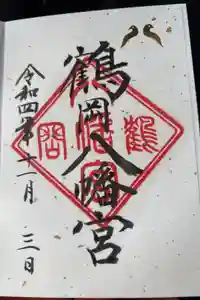 鶴岡八幡宮
令和四年十一月三日
鶴
岡